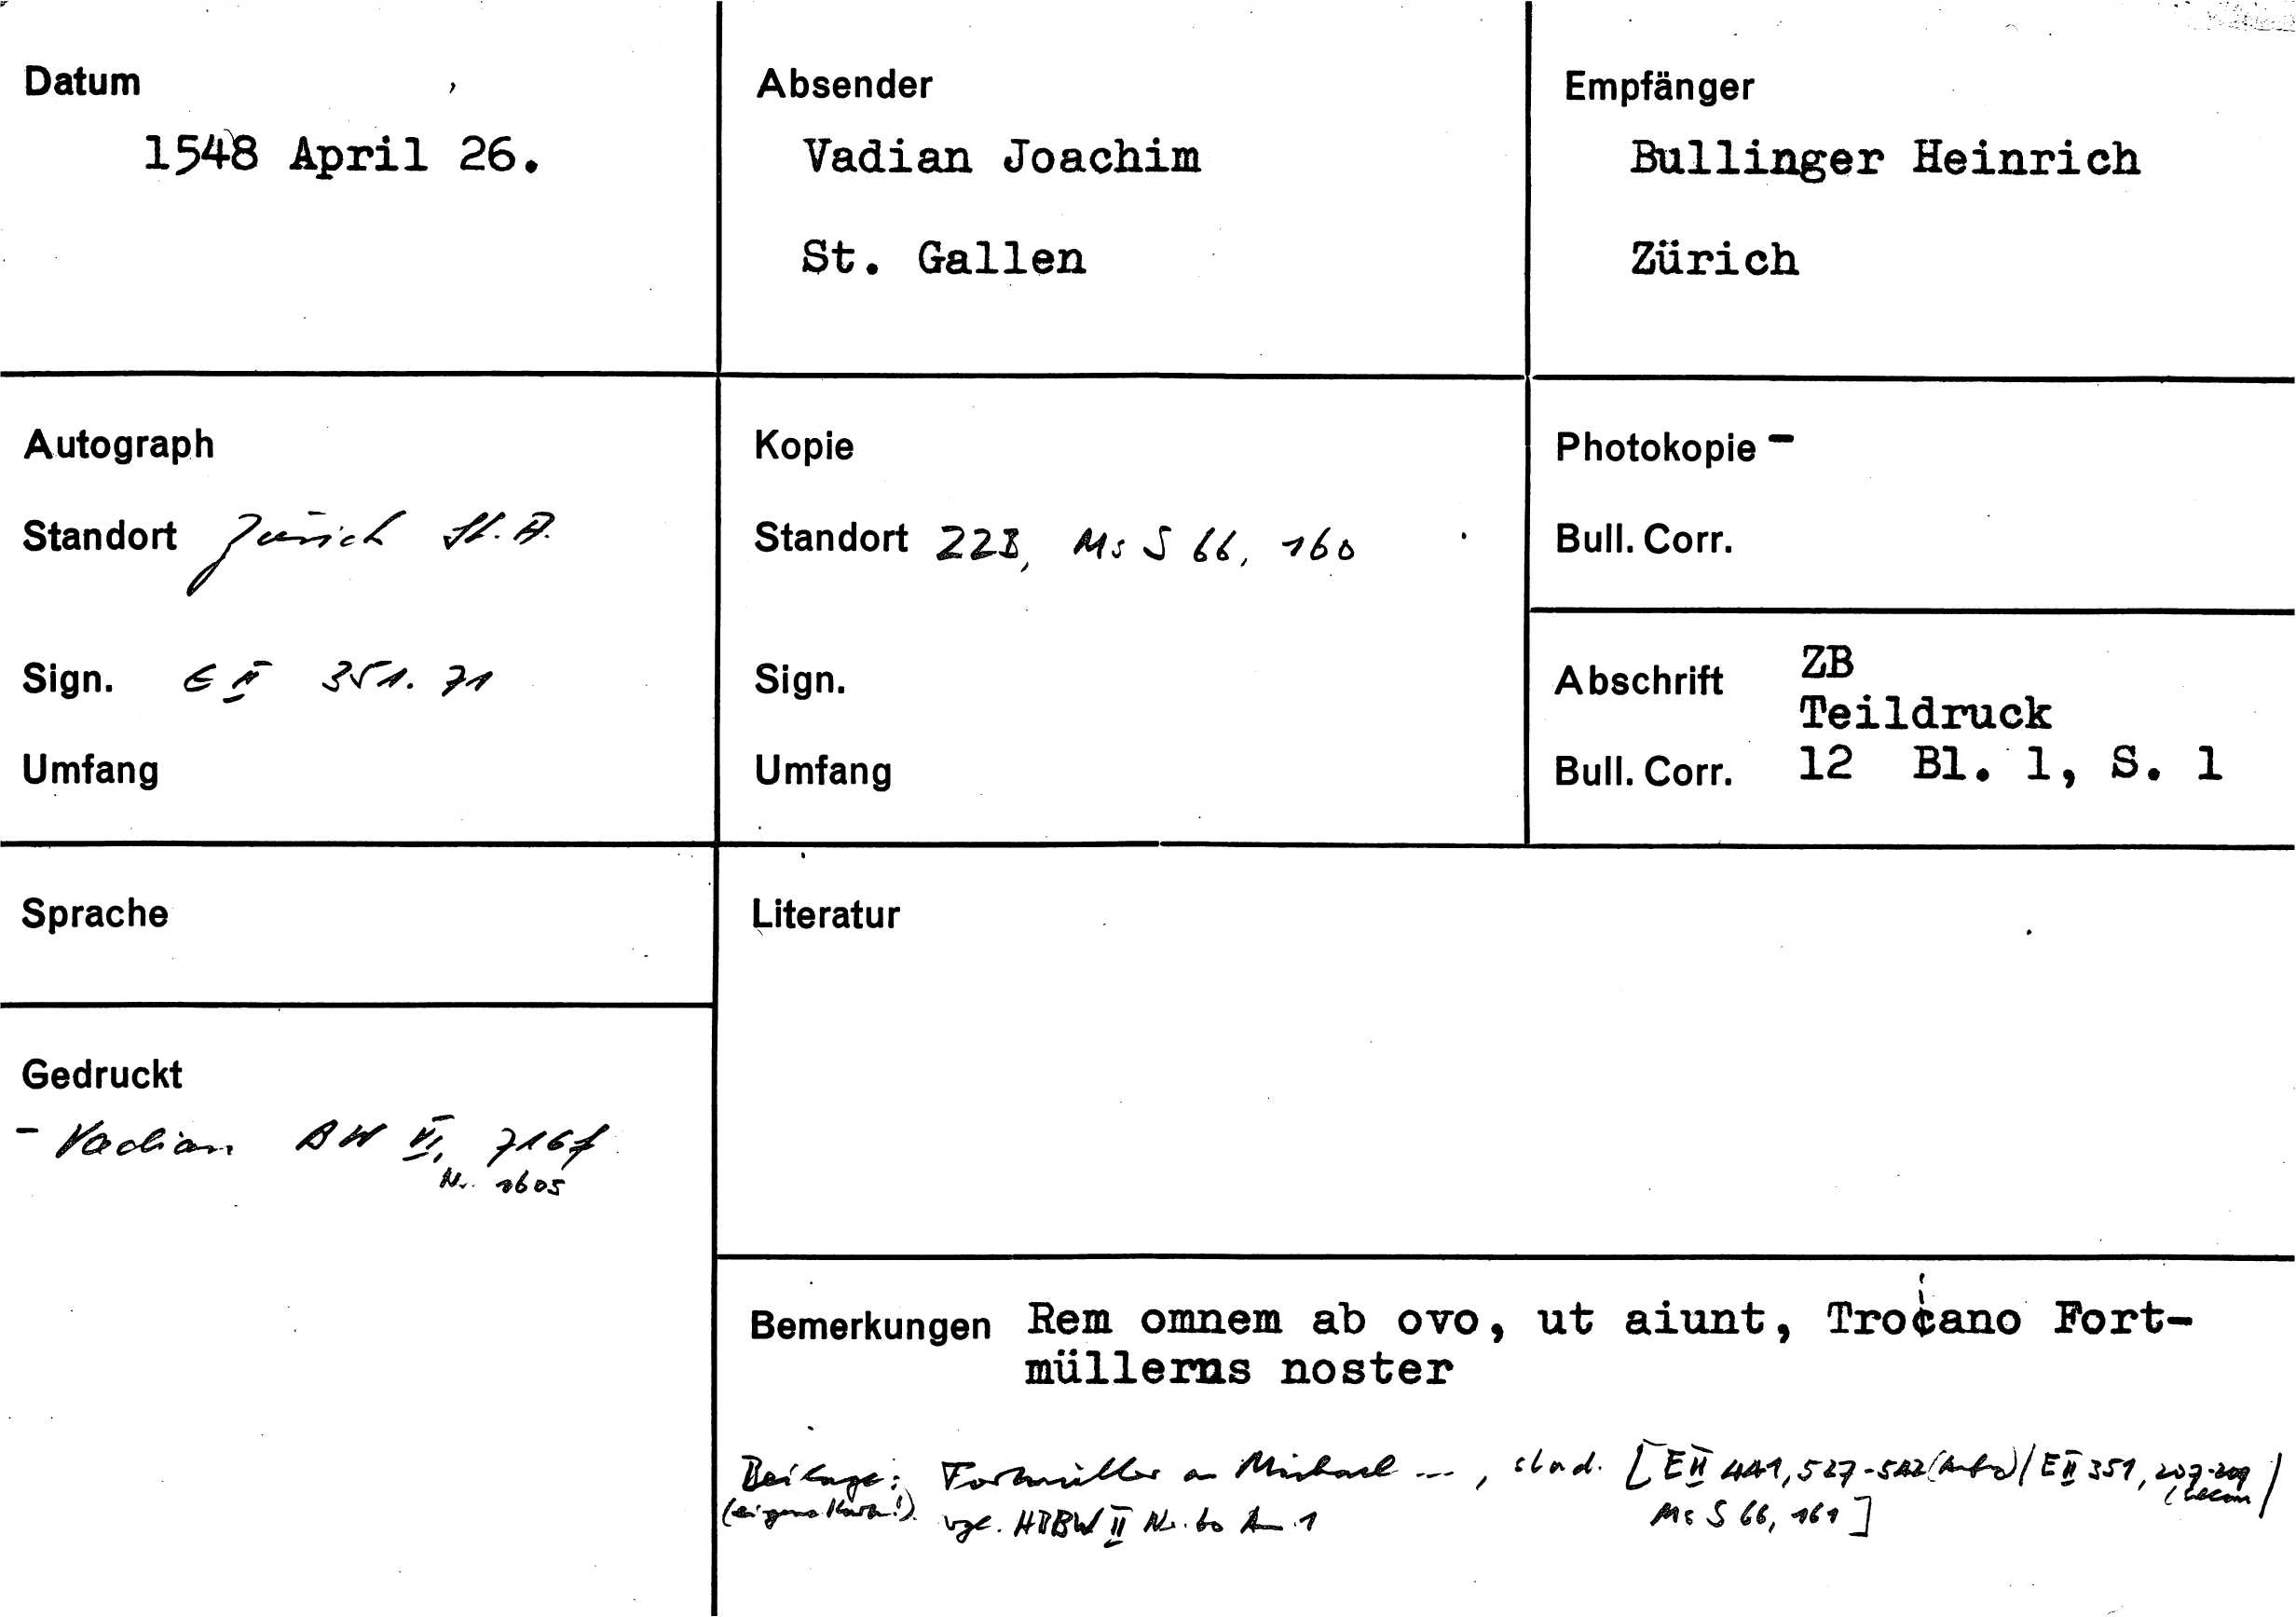 Datum
1548 April 26.
Absender
Vadian Joachim
St. Gallen
Empfänger
Bullinger Heinrich
Zürich
Autograph
Standort Zürich St. A.
Sign. E II 351. 71
Umfang
Kopie
Standort ZZB, Ms S 66, 160
Sign.
Umfang
Photokopie -
Bull. Corr.
Abschrift ZB
Teildruck
Bull. Corr. 12 Bl. 1, S. 1
Sprache
Literatur
Gedruckt
- Vadian BW VI, 716f
Nr. 1605
Bemerkungen Rem omnem ab ovo, ut aiunt, Trocano Fort-
müllerns noster
Beilage: Fortmüller an Michael ..., s.l.a.d. [E II 441, 527-542 / E II 351, 207-209
(eigene Karte!). vgl. HBBW II Nr. 60 A 1
Ms S 66, 161]